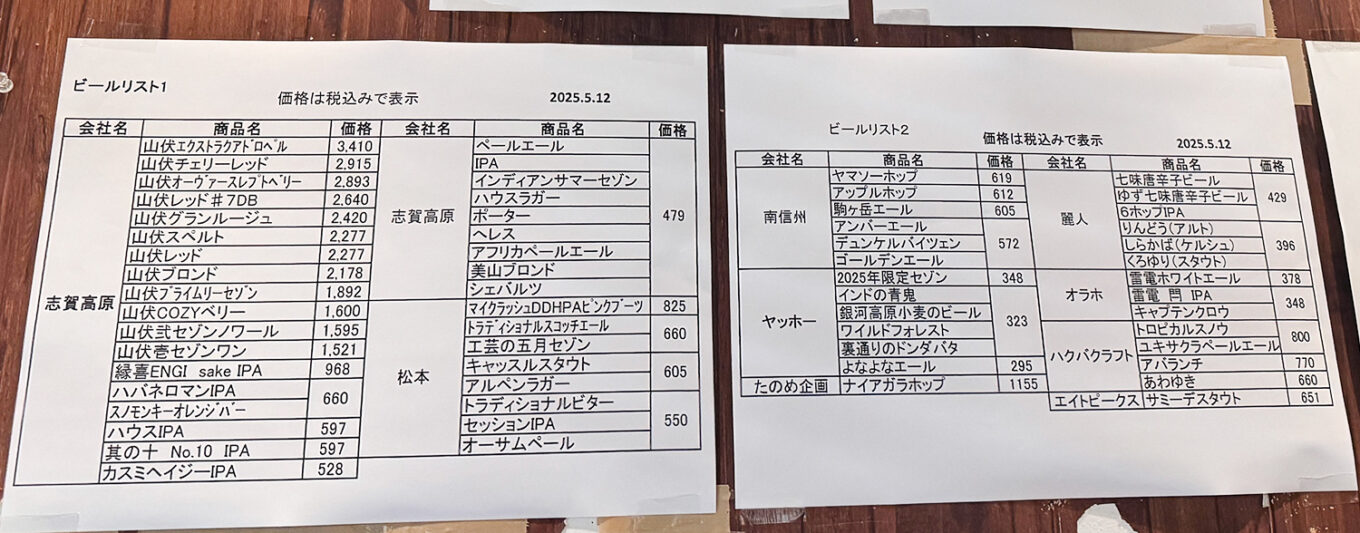 ビールリスト1
価格は税込みで表示 2025.5.12
会社名 商品名 価格 会社名 商品名 価格
志賀高原
山伏エクストラクアドロペル 3,410
山伏チェリーレッド 2,915
山伏オーヴァースレプトベリー 2,893
山伏レッド#7DB 2,640
山伏グランルージュ 2,420
山伏スペルト 2,277
山伏レッド 2,277
山伏ブロンド 2,178
山伏プライムリーセゾン 1,892
山伏COZYベリー 1,600
山伏弐セゾンノワール 1,595
山伏壱セゾンワン 1,521
縁喜ENGI sake IPA 968
ハバネロマンIPA 660
スノモンキーオレンジバー
ハウスIPA 597
其の十 No.10 IPA 597
カスミヘイジーIPA 528
志賀高原
ペールエール 479
IPA
インディアンサマーセゾン
ハウスラガー
ポーター
ヘレス
アフリカペールエール
美山ブロンド
シェバルツ
松本
マイクラッシュDDHPAピンクブーツ 825
トラディショナルスコッチエール 660
工芸の五月セゾン
キャッスルスタウト 605
アルペンラガー
トラディショナルビター 550
セッションIPA
オーサムペール
ビールリスト2
価格は税込みで表示 2025.5.12
会社名 商品名 価格 会社名 商品名 価格
南信州
ヤマソーホップ 619
アップルホップ 612
駒ヶ岳エール 605
アンバーエール 572
デュンケルバイツェン
ゴールデンエール
ヤッホー
2025年限定セゾン 348
インドの青鬼 323
銀河高原小麦のビール
ワイルドフォレスト
裏通りのドンダバタ
よなよなエール 295
たのめ企画 ナイアガラホップ 1155
麗人
七味唐辛子ビール 429
ゆず七味唐辛子ビール
6ホップIPA
りんどう(アルト) 396
しらかば(ケルシュ)
くろゆり(スタウト)
オラホ
雷電ホワイトエール 378
雷電 閂 IPA 348
キャプテンクロウ
ハクバクラフト
トロピカルスノウ 800
ユキサクラペールエール
アバランチ 770
あわゆき 660
エイトピークス サミーデスタウト 651